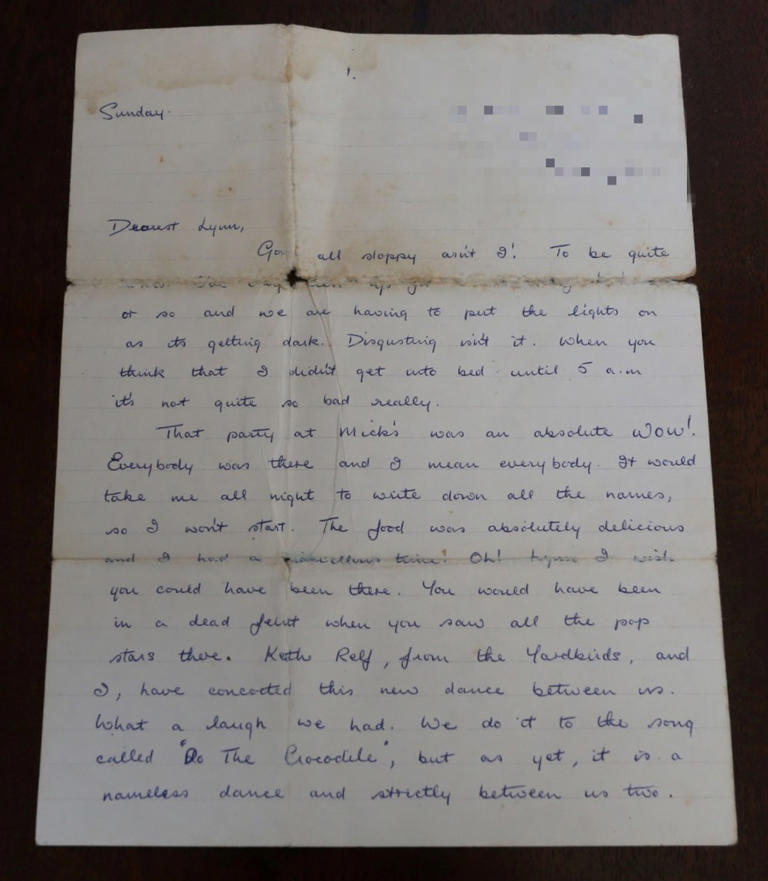 1.
Sunday.
Dearest Lynn,
all sloppy ain't I! To be quite
or so and we are having to put the lights on
as its getting dark. Disgusting isn't it. When you
think that I didn't get into bed until 5 a.m
it's not quite so bad really.
That party at Mick's was an absolute WOW!.
Everybody was there and I mean everybody. It would
take me all night to write down all the names,
so I won't start. The food was absolutely delicious
and I had a marvellous time! Oh! Lynn I wish
you could have been there. You would have been
in a dead feint when you saw all the pop
stars there. Keith Relf, from the Yardbirds, and
I, have concocted this new dance between us.
What a laugh we had. We do it to the song
called "Do The Crocodile", but as yet, it is a
nameless dance and strictly between us two.